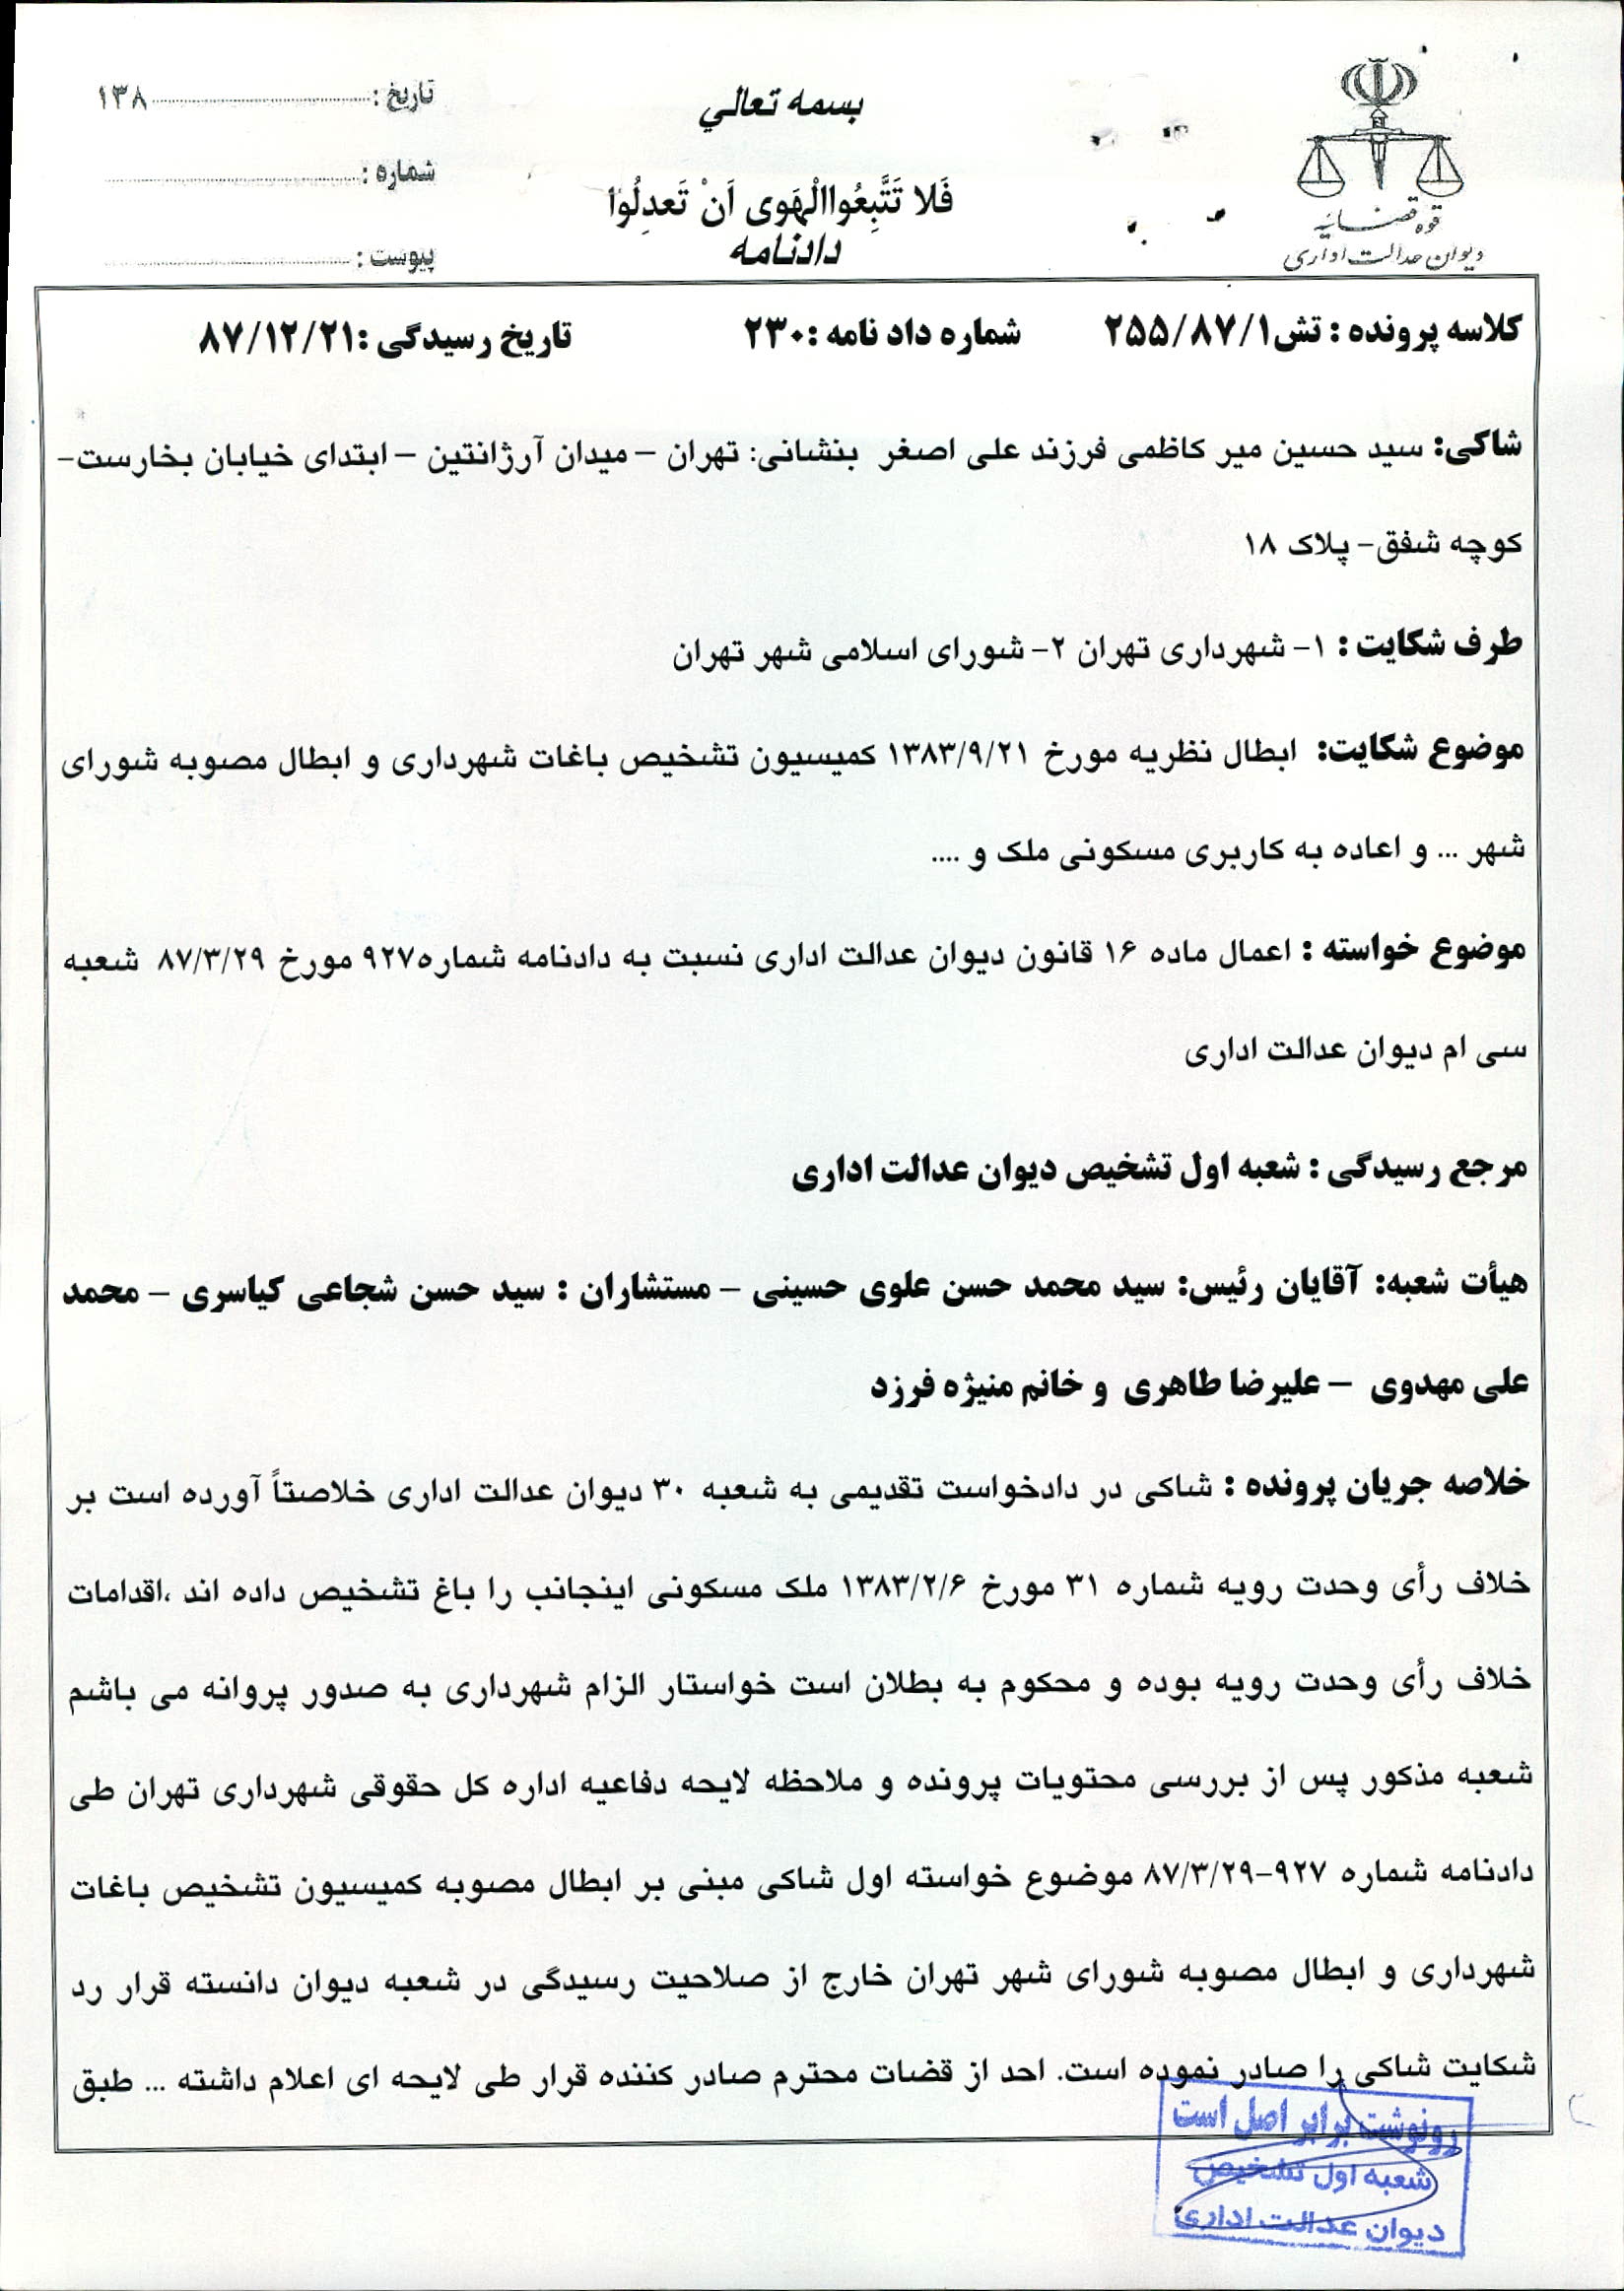 قوه قضائیه
دیوان عدالت اداری
بسمه تعالي
فَلا تَتَّبِعُواالْهَوى اَنْ تَعدِلُوا
دادنامه
تاریخ : ۱۳۸
شماره :
پیوست :
کلاسه پرونده : تش۲۵۵/۸۷/۱ شماره داد نامه :۲۳۰ تاریخ رسیدگی :۸۷/۱۲/۲۱
شاکی: سید حسین میر کاظمی فرزند علی اصغر بنشانی: تهران – میدان آرژانتین – ابتدای خیابان بخارست-
کوچه شفق- پلاک ۱۸
طرف شکایت : ۱- شهرداری تهران ۲- شورای اسلامی شهر تهران
موضوع شکایت: ابطال نظریه مورخ ۱۳۸۳/۹/۲۱ کمیسیون تشخیص باغات شهرداری و ابطال مصوبه شورای
شهر ... و اعاده به کاربری مسکونی ملک و ....
موضوع خواسته : اعمال ماده ۱۶ قانون دیوان عدالت اداری نسبت به دادنامه شماره۹۲۷ مورخ ۸۷/۳/۲۹ شعبه
سی ام دیوان عدالت اداری
مرجع رسیدگی : شعبه اول تشخیص دیوان عدالت اداری
هیأت شعبه: آقایان رئیس: سید محمد حسن علوی حسینی – مستشاران : سید حسن شجاعی کیاسری – محمد
علی مهدوی – علیرضا طاهری و خانم منیژه فرزد
خلاصه جریان پرونده : شاکی در دادخواست تقدیمی به شعبه ۳۰ دیوان عدالت اداری خلاصتاً آورده است بر
خلاف رأی وحدت رویه شماره ۳۱ مورخ ۱۳۸۳/۲/۶ ملک مسکونی اینجانب را باغ تشخیص داده اند ،اقدامات
خلاف رأی وحدت رویه بوده و محکوم به بطلان است خواستار الزام شهرداری به صدور پروانه می باشم
شعبه مذکور پس از بررسی محتویات پرونده و ملاحظه لایحه دفاعیه اداره کل حقوقی شهرداری تهران طی
دادنامه شماره ۹۲۷-۸۷/۳/۲۹ موضوع خواسته اول شاکی مبنی بر ابطال مصوبه کمیسیون تشخیص باغات
شهرداری و ابطال مصوبه شورای شهر تهران خارج از صلاحیت رسیدگی در شعبه دیوان دانسته قرار رد
شکایت شاکی را صادر نموده است. احد از قضات محترم صادر کننده قرار طی لایحه ای اعلام داشته ... طبق
رونوشت برابر اصل است
شعبه اول تشخیص
دیوان عدالت اداری